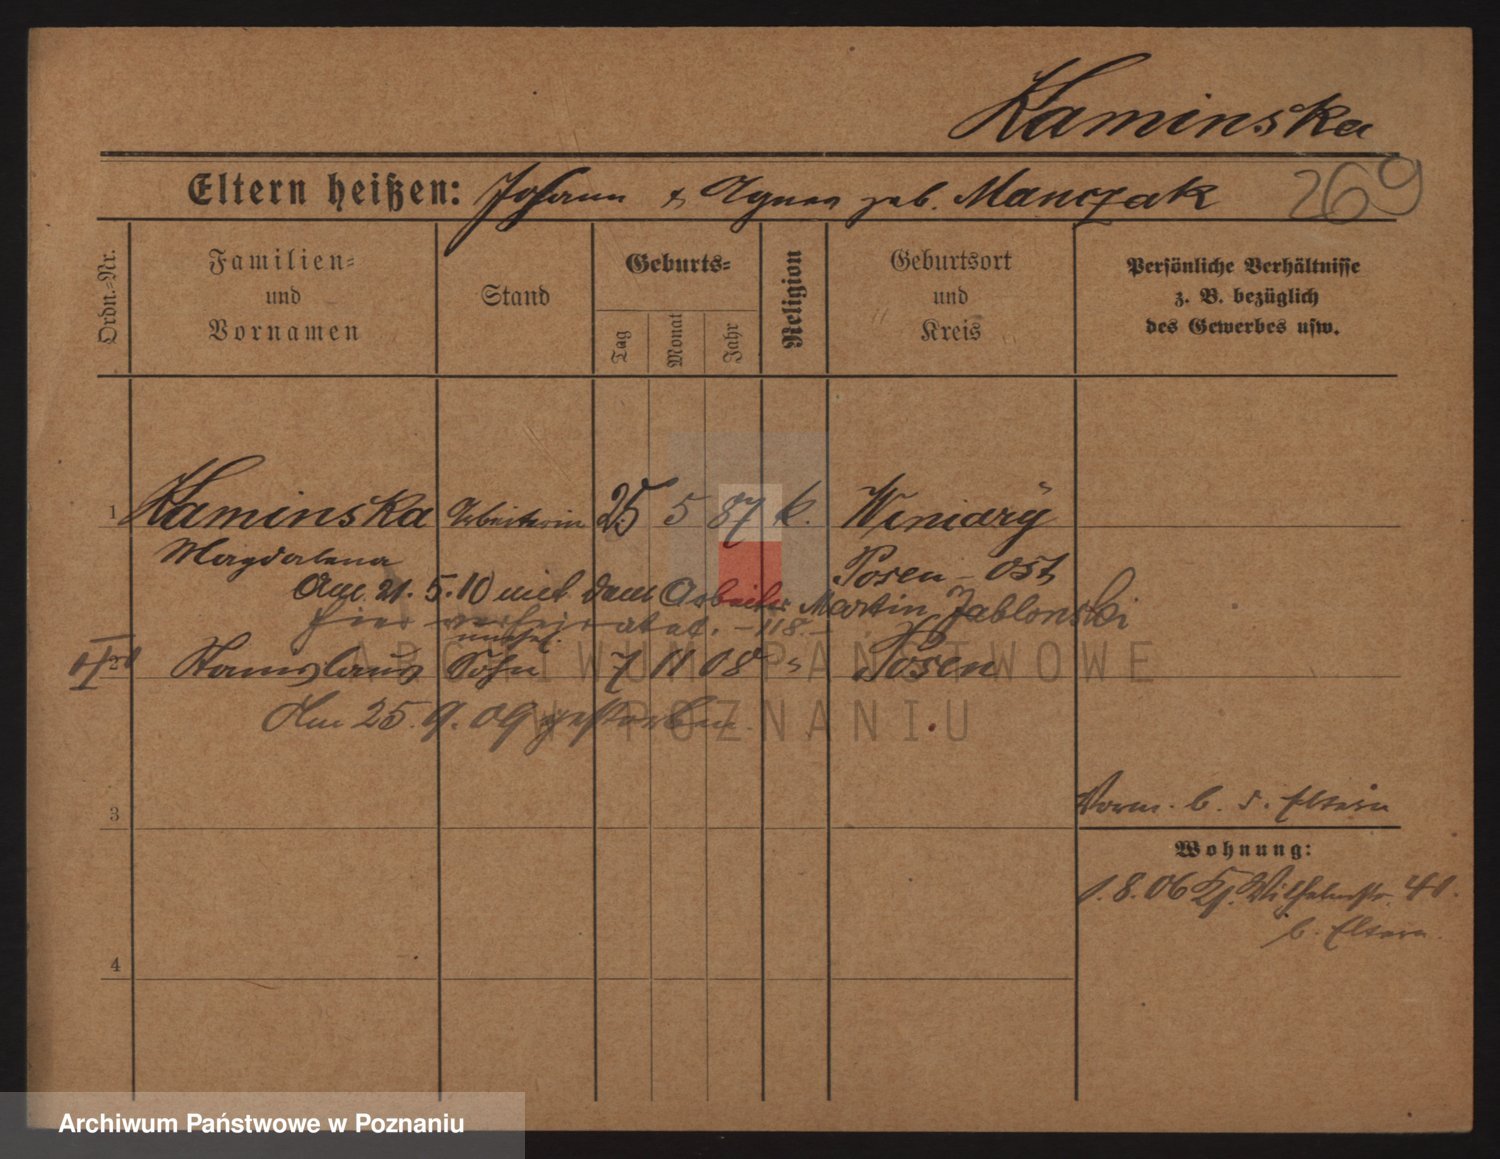 Kaminska
Eltern heißen: Johann & Agnes geb. Manczak 269
Ordn.-Nr.
Familien-
und
Vornamen
Stand
Geburts-
Tag
Monat
Jahr
Religion
Geburtsort
und
Kreis
Persönliche Verhältnisse
z. B. bezüglich
des Gewerbes usw.
1 Kaminska Arbeiterin 25 5 87 k. Winiary
Magdalena Posen-Ost
Am 21.5.10 mit dem Arbeiter Martin Jablonski
hier verheiratet. -118.-
unehel.
Stanislaus Sohn 7 11 08 " Posen
Am 25.9.09 gestorben.
ARCHIWUM PAŃSTWOWE
W POZNANIU
3
Vorm. b. d. Eltern
Wohnung:
1.8.06 Wilhelmstr. 41.
b. Eltern.
4
Archiwum Państwowe w Poznaniu